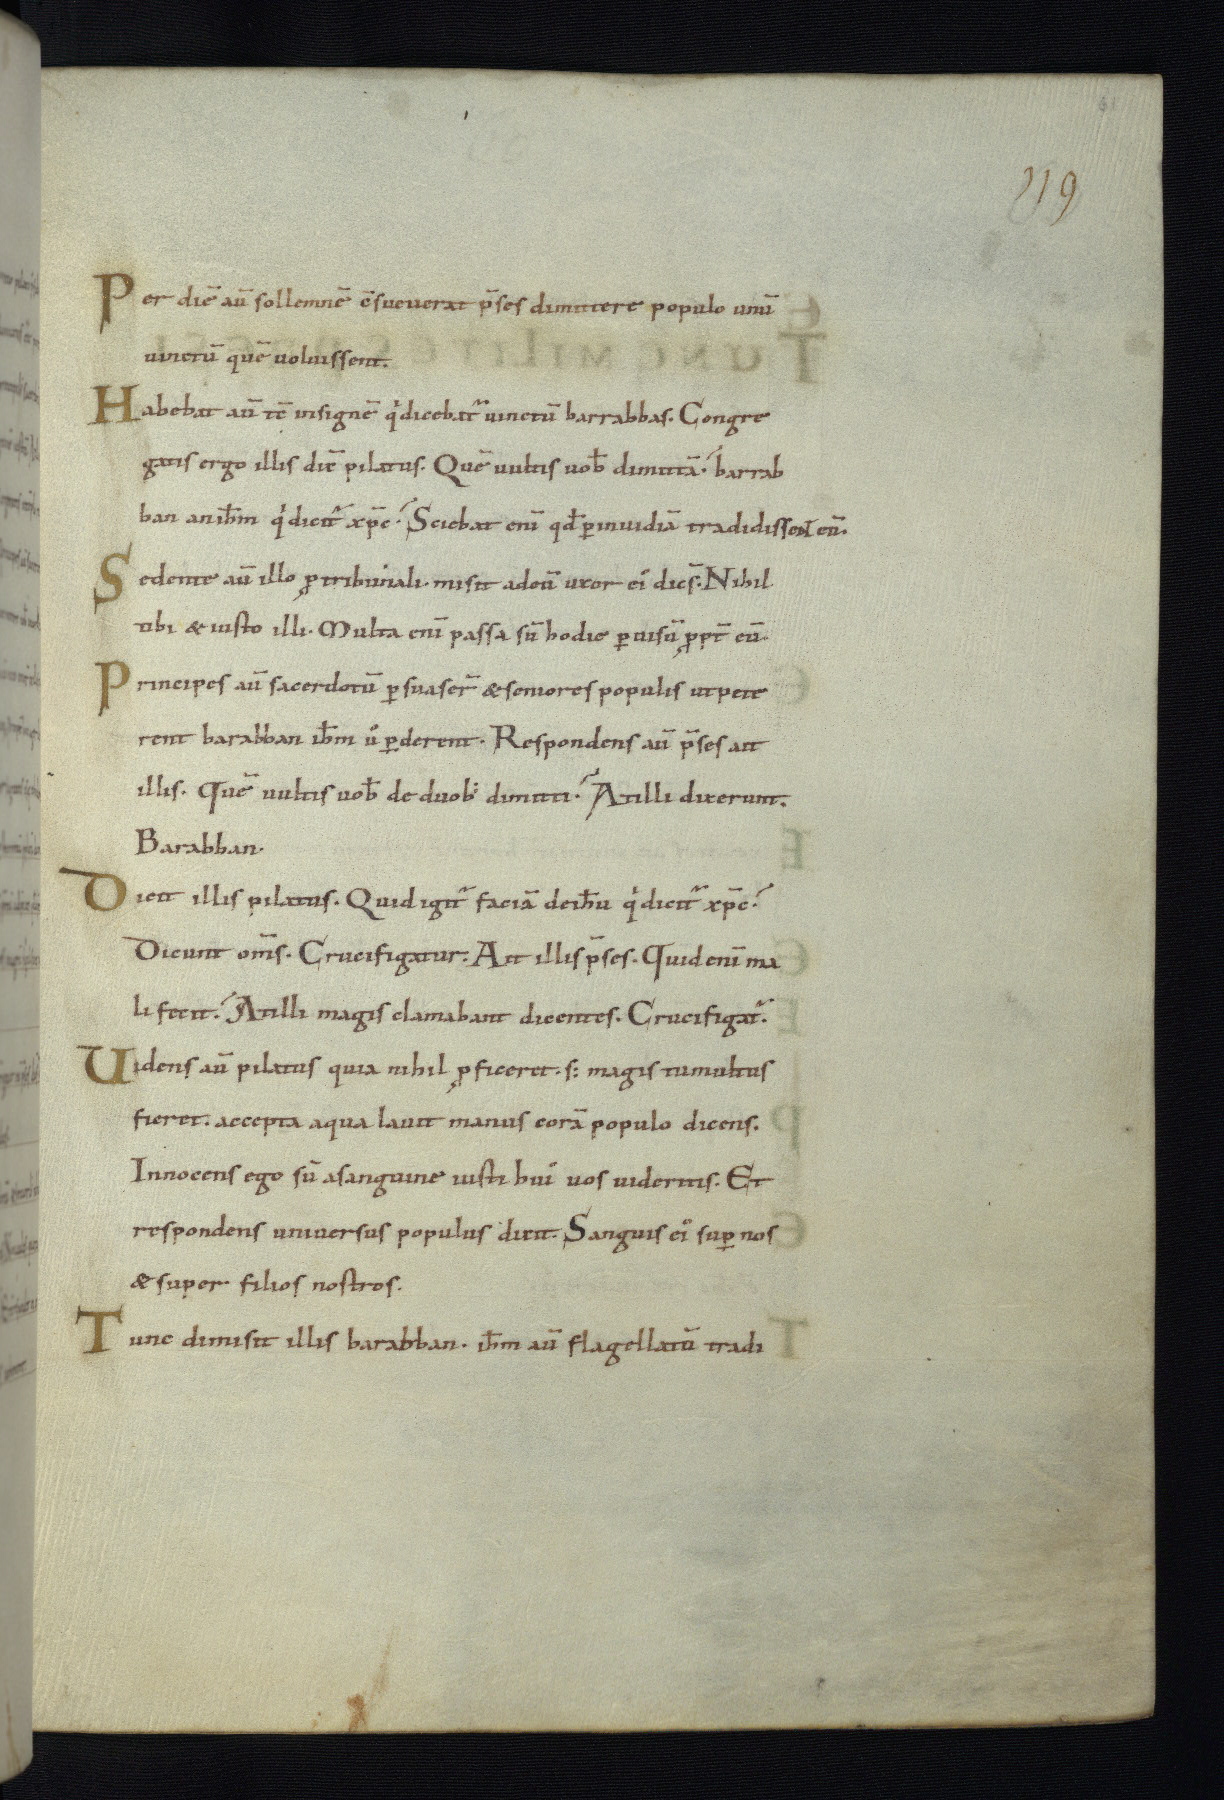 61
119
Per diē aū sollemnē c̄sueverat p̄ses dimittere populo unū
uinctū quē uoluissent.
Habebat aū tc̄ insignē qͥ dicebat᷑ uinctū barrabbas. Congre
gatis ergo illis dix̄ pilatus. Quē uultis uob̄ dimittā. barrab
ban an ih̄m qͥ dicit᷑ xp̄c. Sciebat eni͂ qd̄ ꝑ inuidiā tradidissent eū.
Sedente aū illo ꝓ tribunali. misit ad eū uxor ei᷒ dicēs. Nihil
tibi & iusto illi. Multa enī passa sū hodie ꝑ uisū ꝓpt̄ eū.
Principes aū sacerdotū ꝑsuaser̄ & seniores populis ut pete
rent barabban ih̄m ů ꝑderent. Respondens aū p̄ses ait
illis. Quē uultis uob̄ de duob; dimitti. At illi dixerunt.
Barabban.
Dicit illis pilatus. Quid igit᷑ faciā de ih̄u qͥ dicit᷑ xp̄c.
Dicunt om̄s. Crucifigatur. Ait illis p̄ses. Quid enī ma
li fecit. At illi magis clamabant dicentes. Crucifigat᷑.
Uidens aū pilatus quia nihil ꝓficeret. s; magis tumultus
fieret. accepta aqua lauit manus corā populo dicens.
Innocens ego sū a sanguine iusti hui᷒ uos uideritis. Et
respondens uniuersus populus dixit. Sanguis ei᷒ suꝑ nos
& super filios nostros.
Tunc dimisit illis barabban. ih̄m aū flagellatū tradi